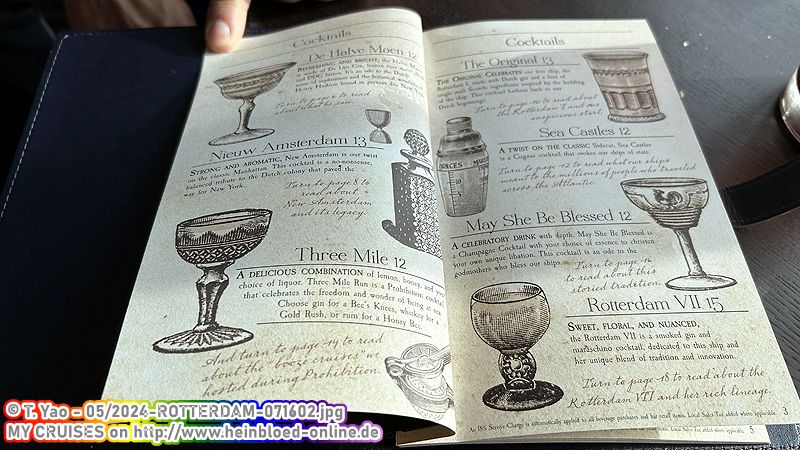 Cocktails
De Halve Maen 12
REFRESHING AND BRIGHT, the Halve
is made of De Lijn Gin, lemon
and DDG bitters. It's an ode to the Dutch
of exploration and the botanicals
Henry Hudson found in present day New York.
Turn to page 6 to read
about what he saw.
Nieuw Amsterdam 13
STRONG AND AROMATIC, New Amsterdam is our twist
on the classic Manhattan. This cocktail is a no-nonsense,
balanced tribute to the Dutch colony that paved the
way for New York.
Turn to page 8 to
read about
New Amsterdam
and its legacy.
Three Mile 12
A DELICIOUS COMBINATION of lemon, honey, and
choice of liquor. Three Mile Run is a Prohibition cocktail
that celebrates the freedom and wonder of being at sea.
Choose gin for a Bee's Knees, whiskey for a
Gold Rush, or rum for a Honey Bee.
And turn to page 14 to read
about the "booze cruises" we
hosted during Prohibition.
Cocktails
The Original 13
THE ORIGINAL CELEBRATES our first ship, the
Rotterdam I, made with Dutch gin and a hint of
single malt Scotch, ingredients inspired by the building
of the ship. This cocktail harkens back to our
Dutch beginnings.
Turn to page 10 to read about
the Rotterdam I and our
auspicious start.
OUNCES
MEASURES
Sea Castles 12
A TWIST ON THE CLASSIC Sidecar, Sea Castles
is a Cognac cocktail that evokes our ships of state.
Turn to page 12 to read what our ships
meant to the millions of people who traveled
across the Atlantic.
May She Be Blessed 12
A CELEBRATORY DRINK with depth, May She Be Blessed is
a Champagne Cocktail with your choice of essence to christen
your own unique libation. This cocktail is an ode to the
godmothers who bless our ships.
Turn to page 16
to read about this
storied tradition.
Rotterdam VII 15
SWEET, FLORAL, AND NUANCED,
the Rotterdam VII is a smoked gin and
maraschino cocktail, dedicated to this ship and
her unique blend of tradition and innovation.
Turn to page 18 to read about the
Rotterdam VII and her rich lineage.
An 18% Service Charge is automatically applied to all beverage purchases and bar retail items. Local Sales Tax added where applicable. 3
Local Sales Tax added where applicable. 5
© T. Yao - 05/2024-ROTTERDAM-071602.jpg
MY CRUISES on http://www.heinbloed-online.de